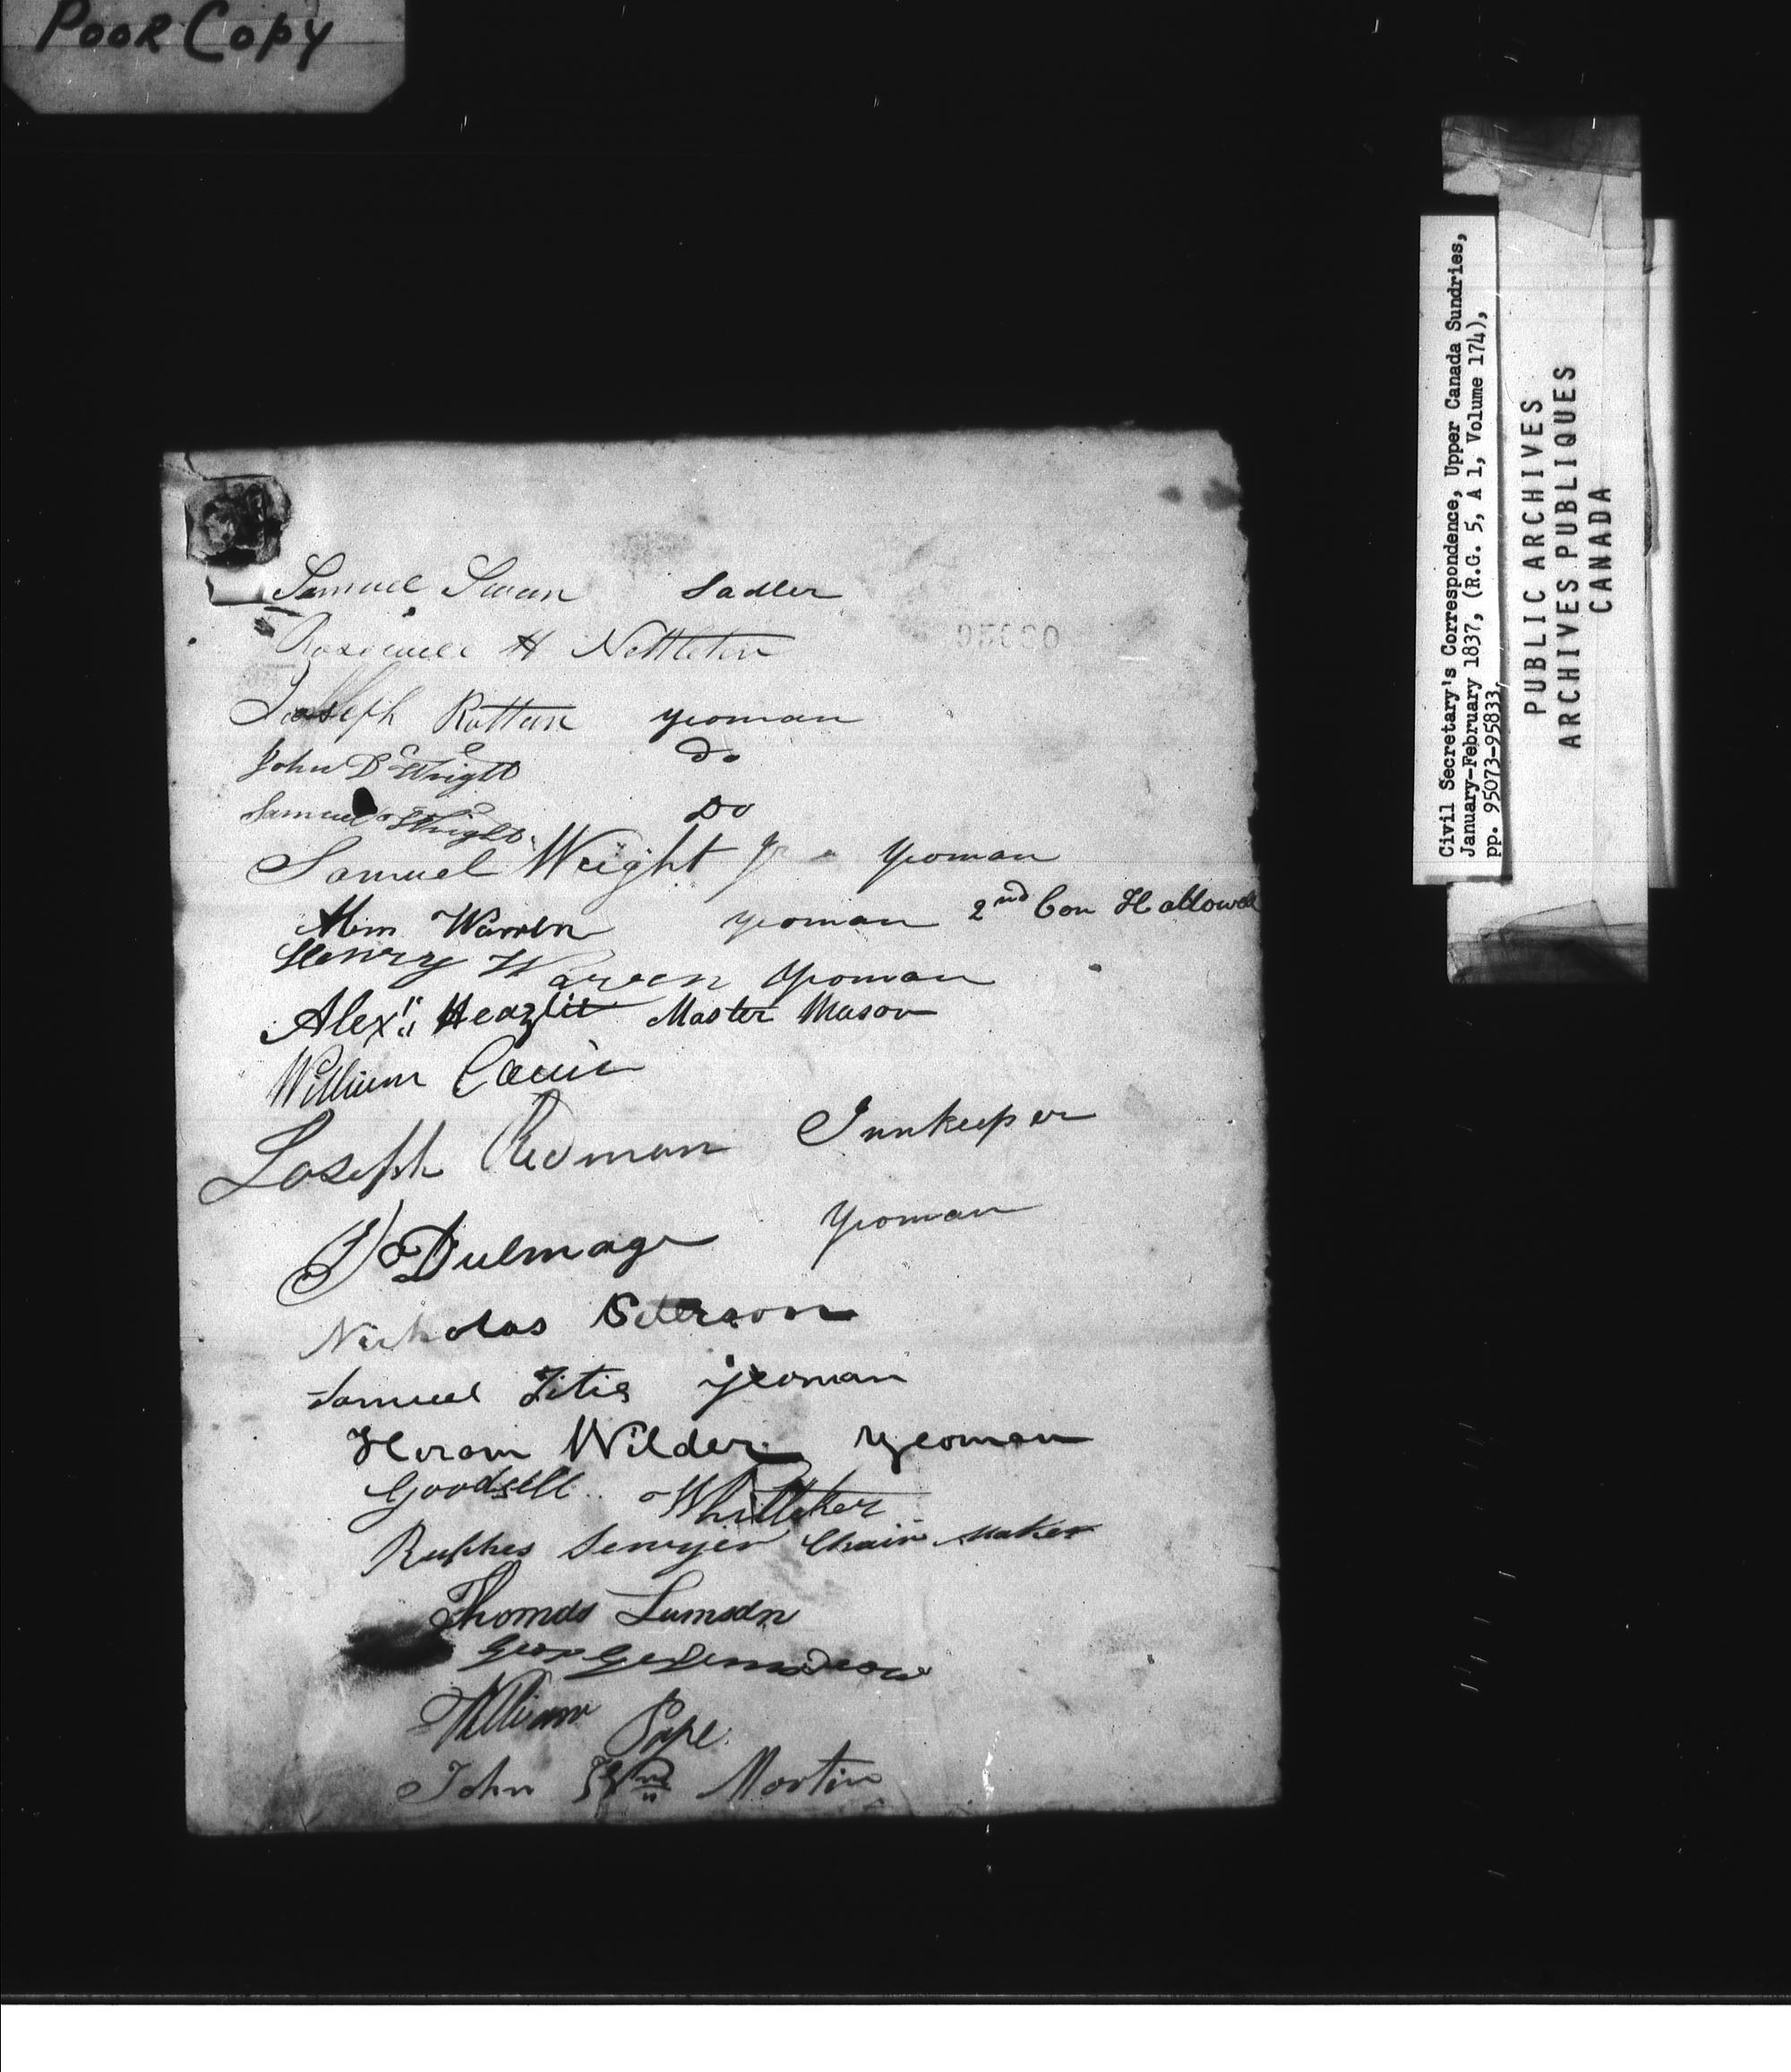 Poor Copy
Samuel Swan Sadler
Rosewell H Nettleton
Joseph Ruttan yeoman
John D Wright Do
Samuel Wright Do
Samuel Wright Jr yeoman
Warren yeoman 2nd Con Hallowell
Henry Warren yeoman
Alexr Heazlit Master Mason
William
Joseph Redman Innkeeper
Dulmage yeoman
Nicholas Peterson
Samuel Titis yeoman
Hiram Wilder yeoman
Goodsell Whitteker
Ruphes Sewyer Chair Maker
Thomas Lumsdn
George
William Pope
John Wm Martin
Civil Secretary's Correspondence, Upper Canada Sundries,
January-February 1837, (R.G. 5, A 1, Volume 174),
pp. 95073-95833,
PUBLIC ARCHIVES
ARCHIVES PUBLIQUES
CANADA